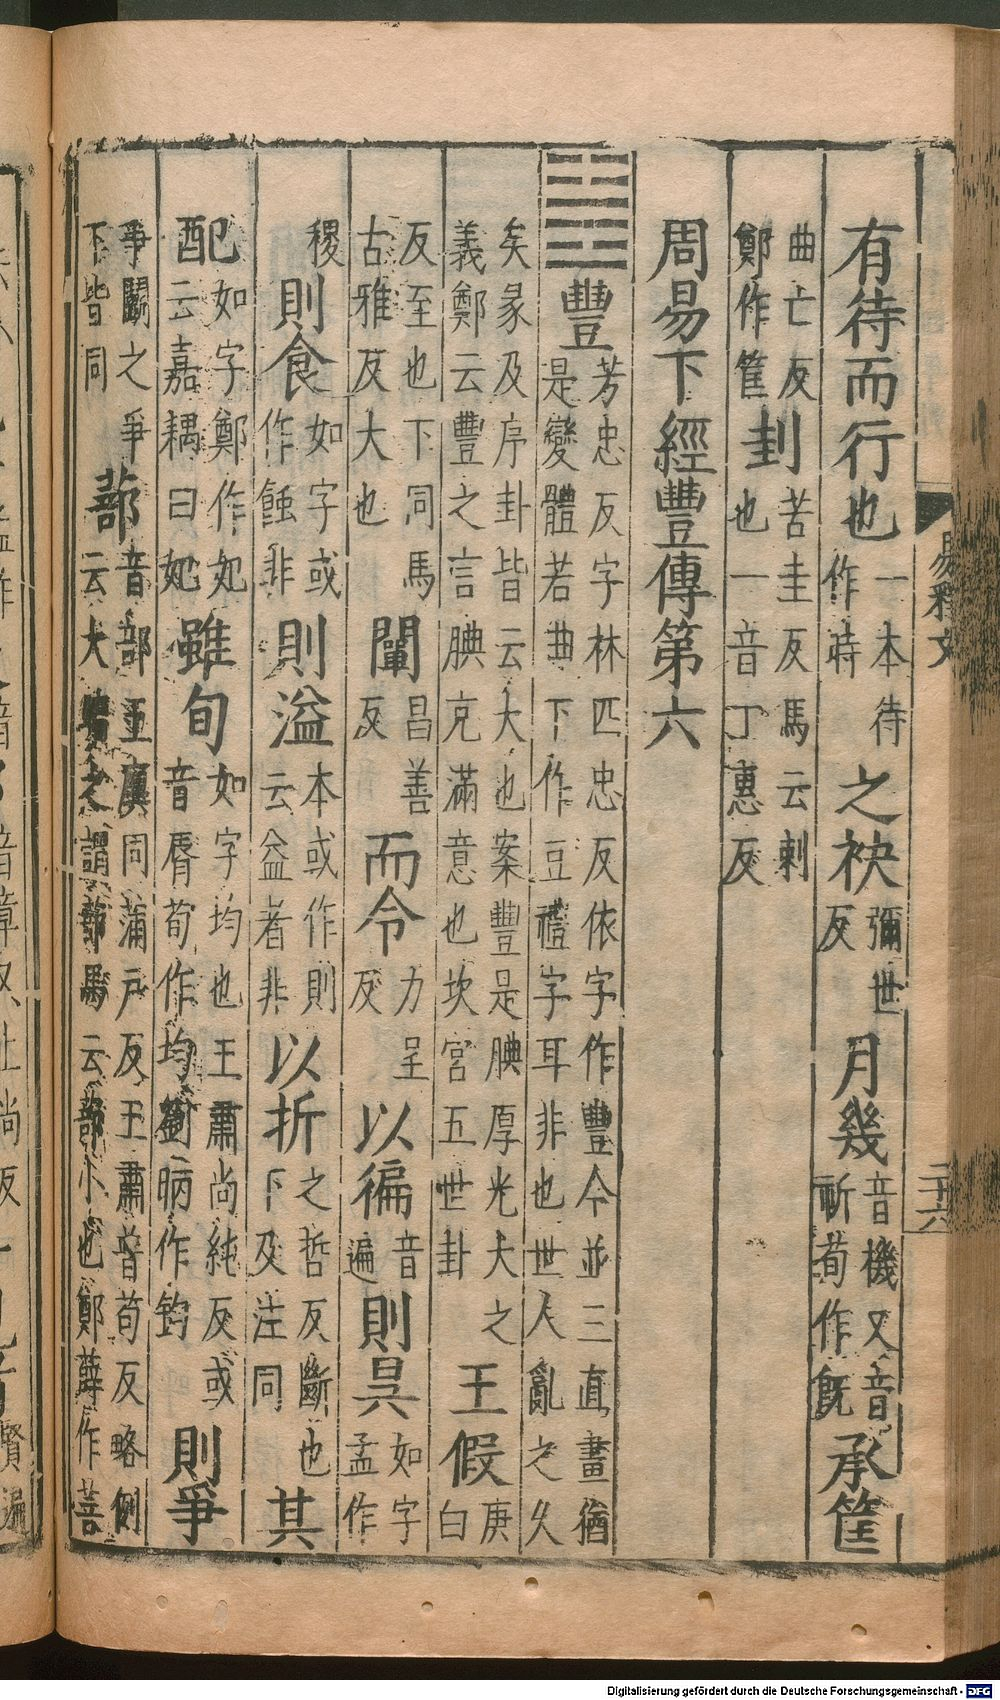 有待而行也一本待作時之袂彌世反月幾音機又音祈荀作既承筐
曲亡反鄭作筐封苦圭反馬云刺也一音丁惠反
周易下經豐傳第六
豐芳忠反字林匹忠反依字作豐今並三直畫猶是變體若曲下作豆禮字耳非也世人亂之久
矣彖及序卦皆云大也案豐是腆厚光大之義鄭云豐之言腆充滿意也坎宮五世卦王假庚白
反至也下同馬古雅反大也闡昌善反而令力呈反以徧音遍則昃如字孟作
稷則食如字或作蝕非則溢本或作則云益者非以折之哲反斷也下及注同其
配如字鄭作妃云嘉耦曰妃雖旬如字均也王肅尚純反或音脣荀作均劉昞作鈞則爭
爭鬭之爭下皆同蔀音部王廙同蒲戶反王肅普苟反略例云大暗之謂蔀馬云蔀小也鄭薛作菩
易釋文
二十六
Digitalisierung gefördert durch die Deutsche Forschungsgemeinschaft - DFG